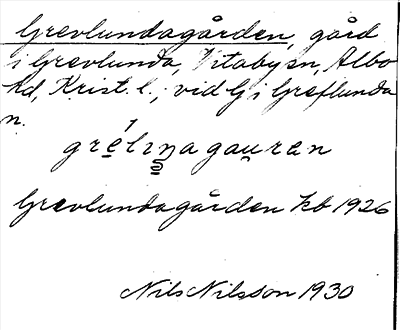 Grevlundagården, gård
i Grevlunda, Vitaby sn, Albo
hd, Krist. l., vid G i Greflunda
n.
gre̱lıṉagau̯ren
Grevlundagården kb 1926
Nils Nilsson 1930